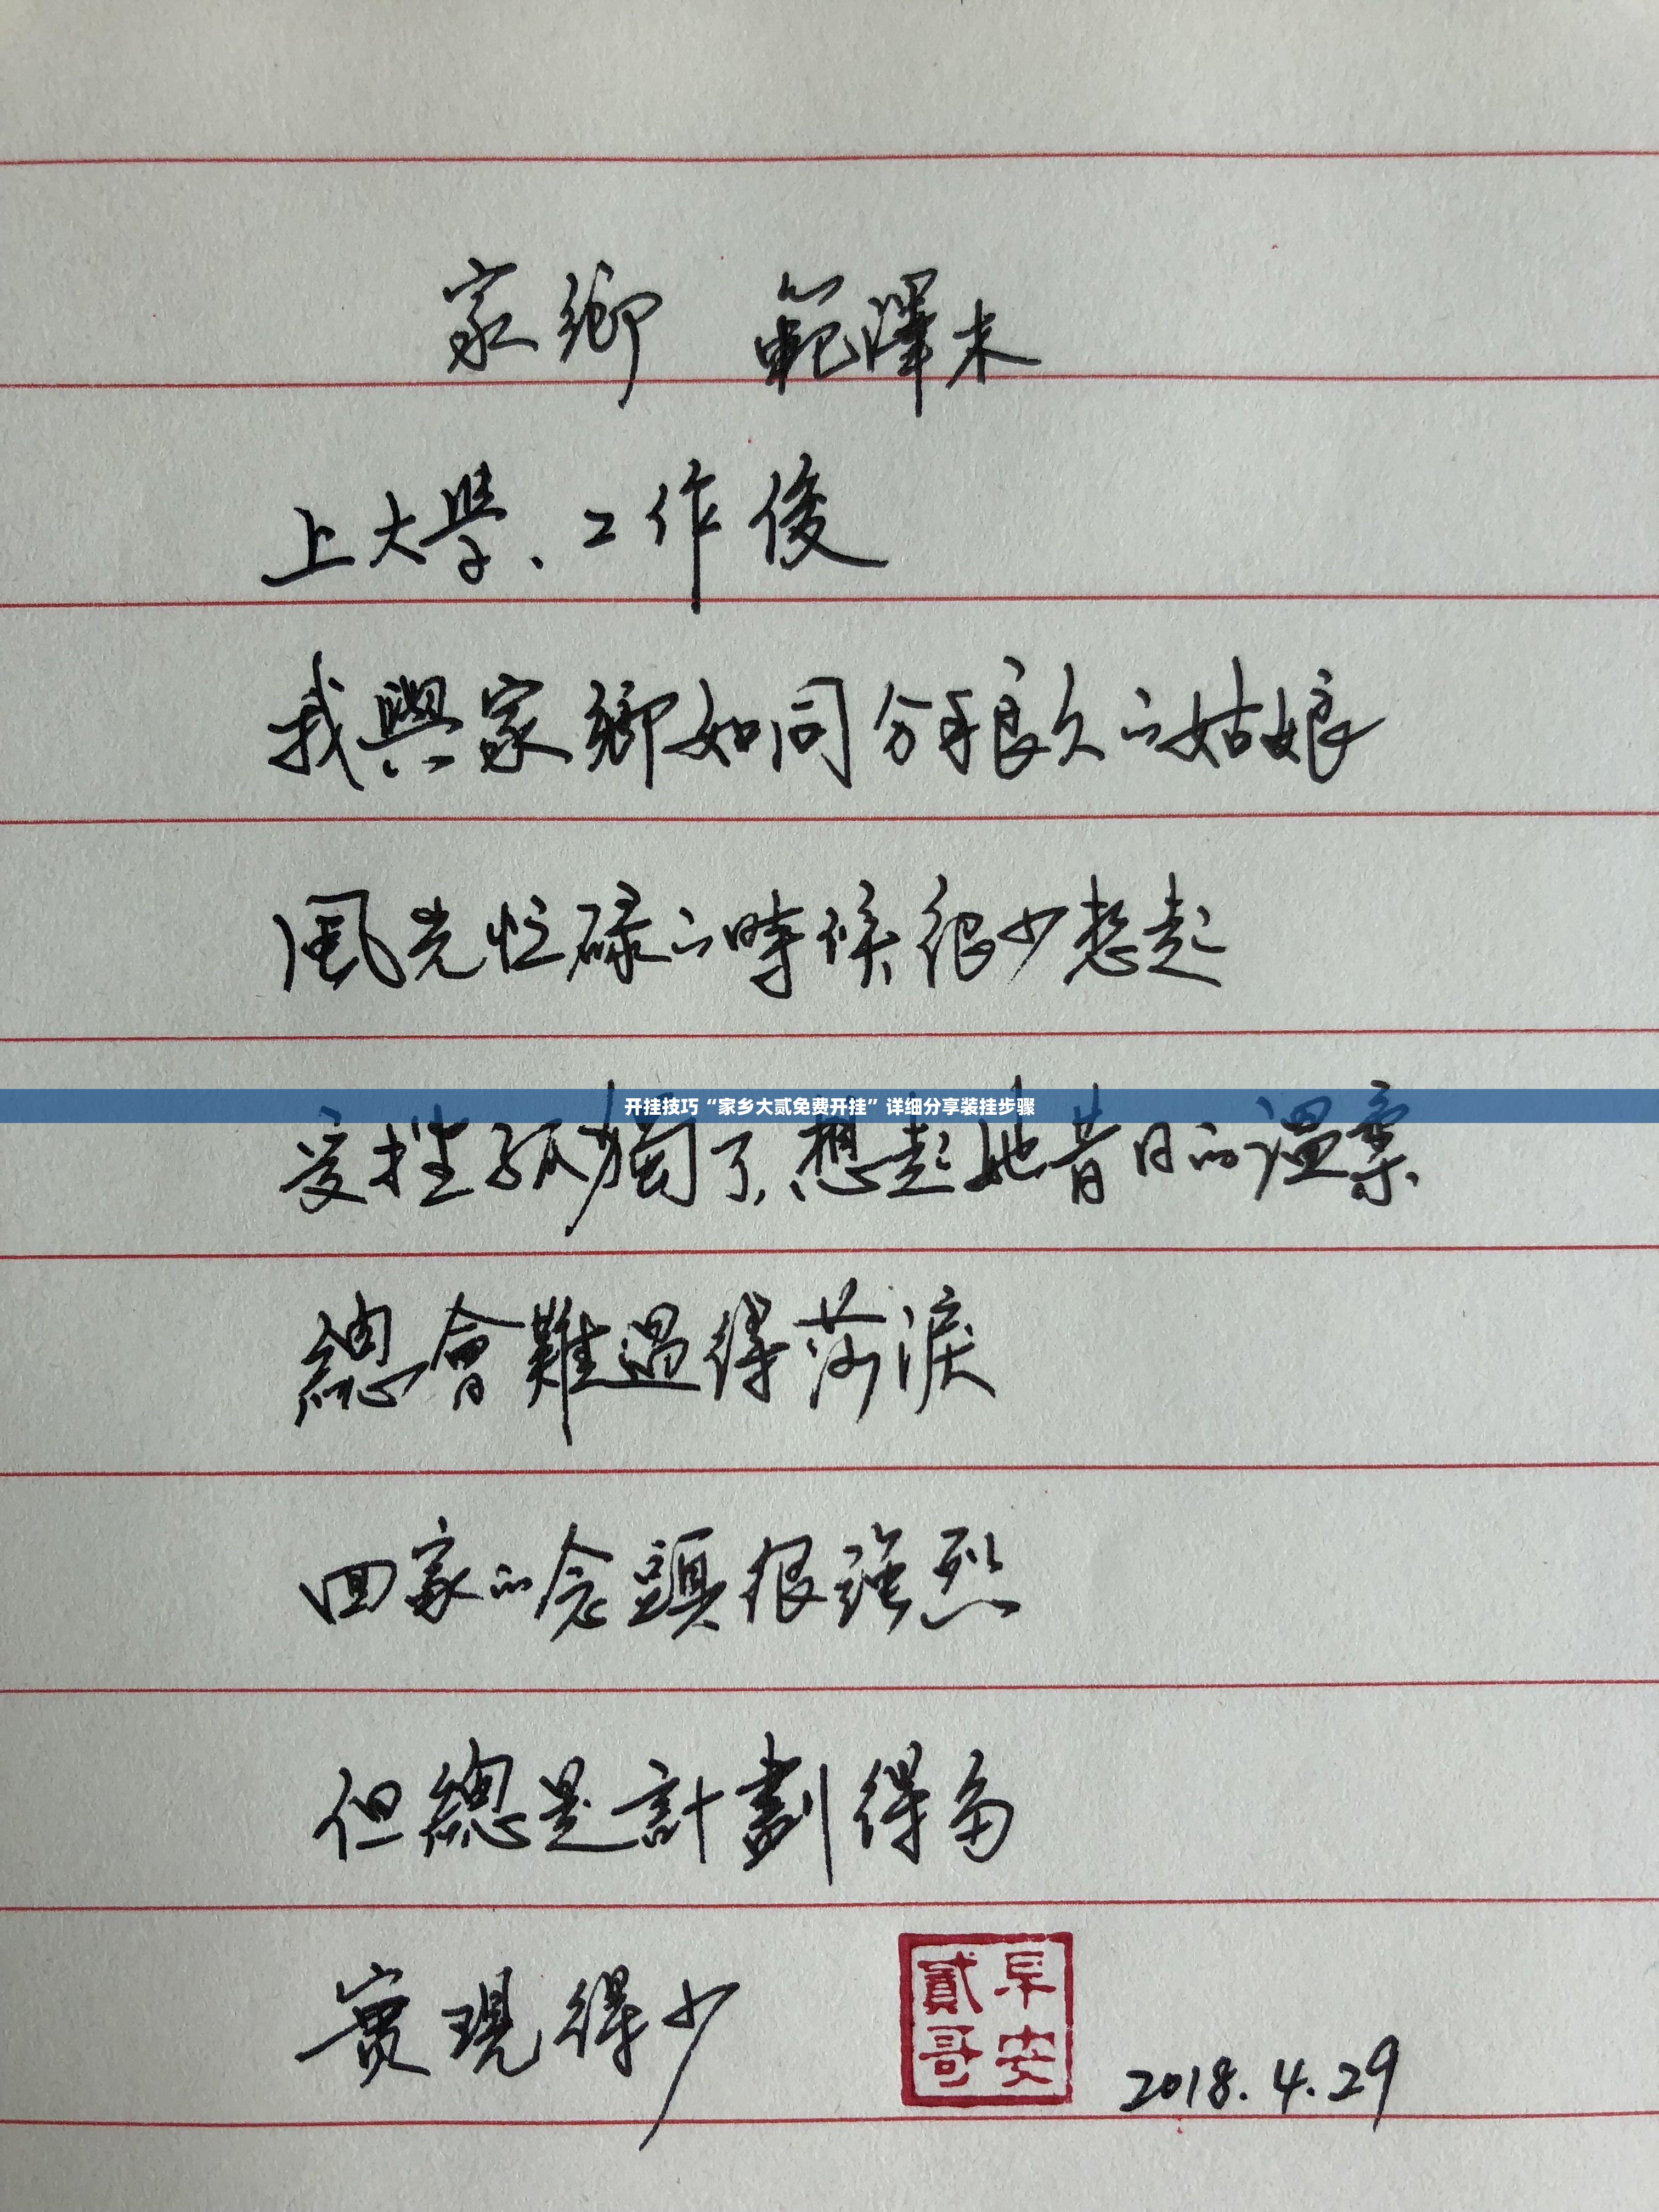 家鄉 範澤木
上大学、工作後
我與家鄉如同分手很久的姑娘
風光忙碌的時候很少想起
开挂技巧“家乡大贰免费开挂”详细分享装挂步骤
受挫孤獨了,想起她昔日的溫柔
總會難過得落淚
回家的念頭很強烈
但總是計劃得多
實現得少
早安
貳哥
2018.4.29